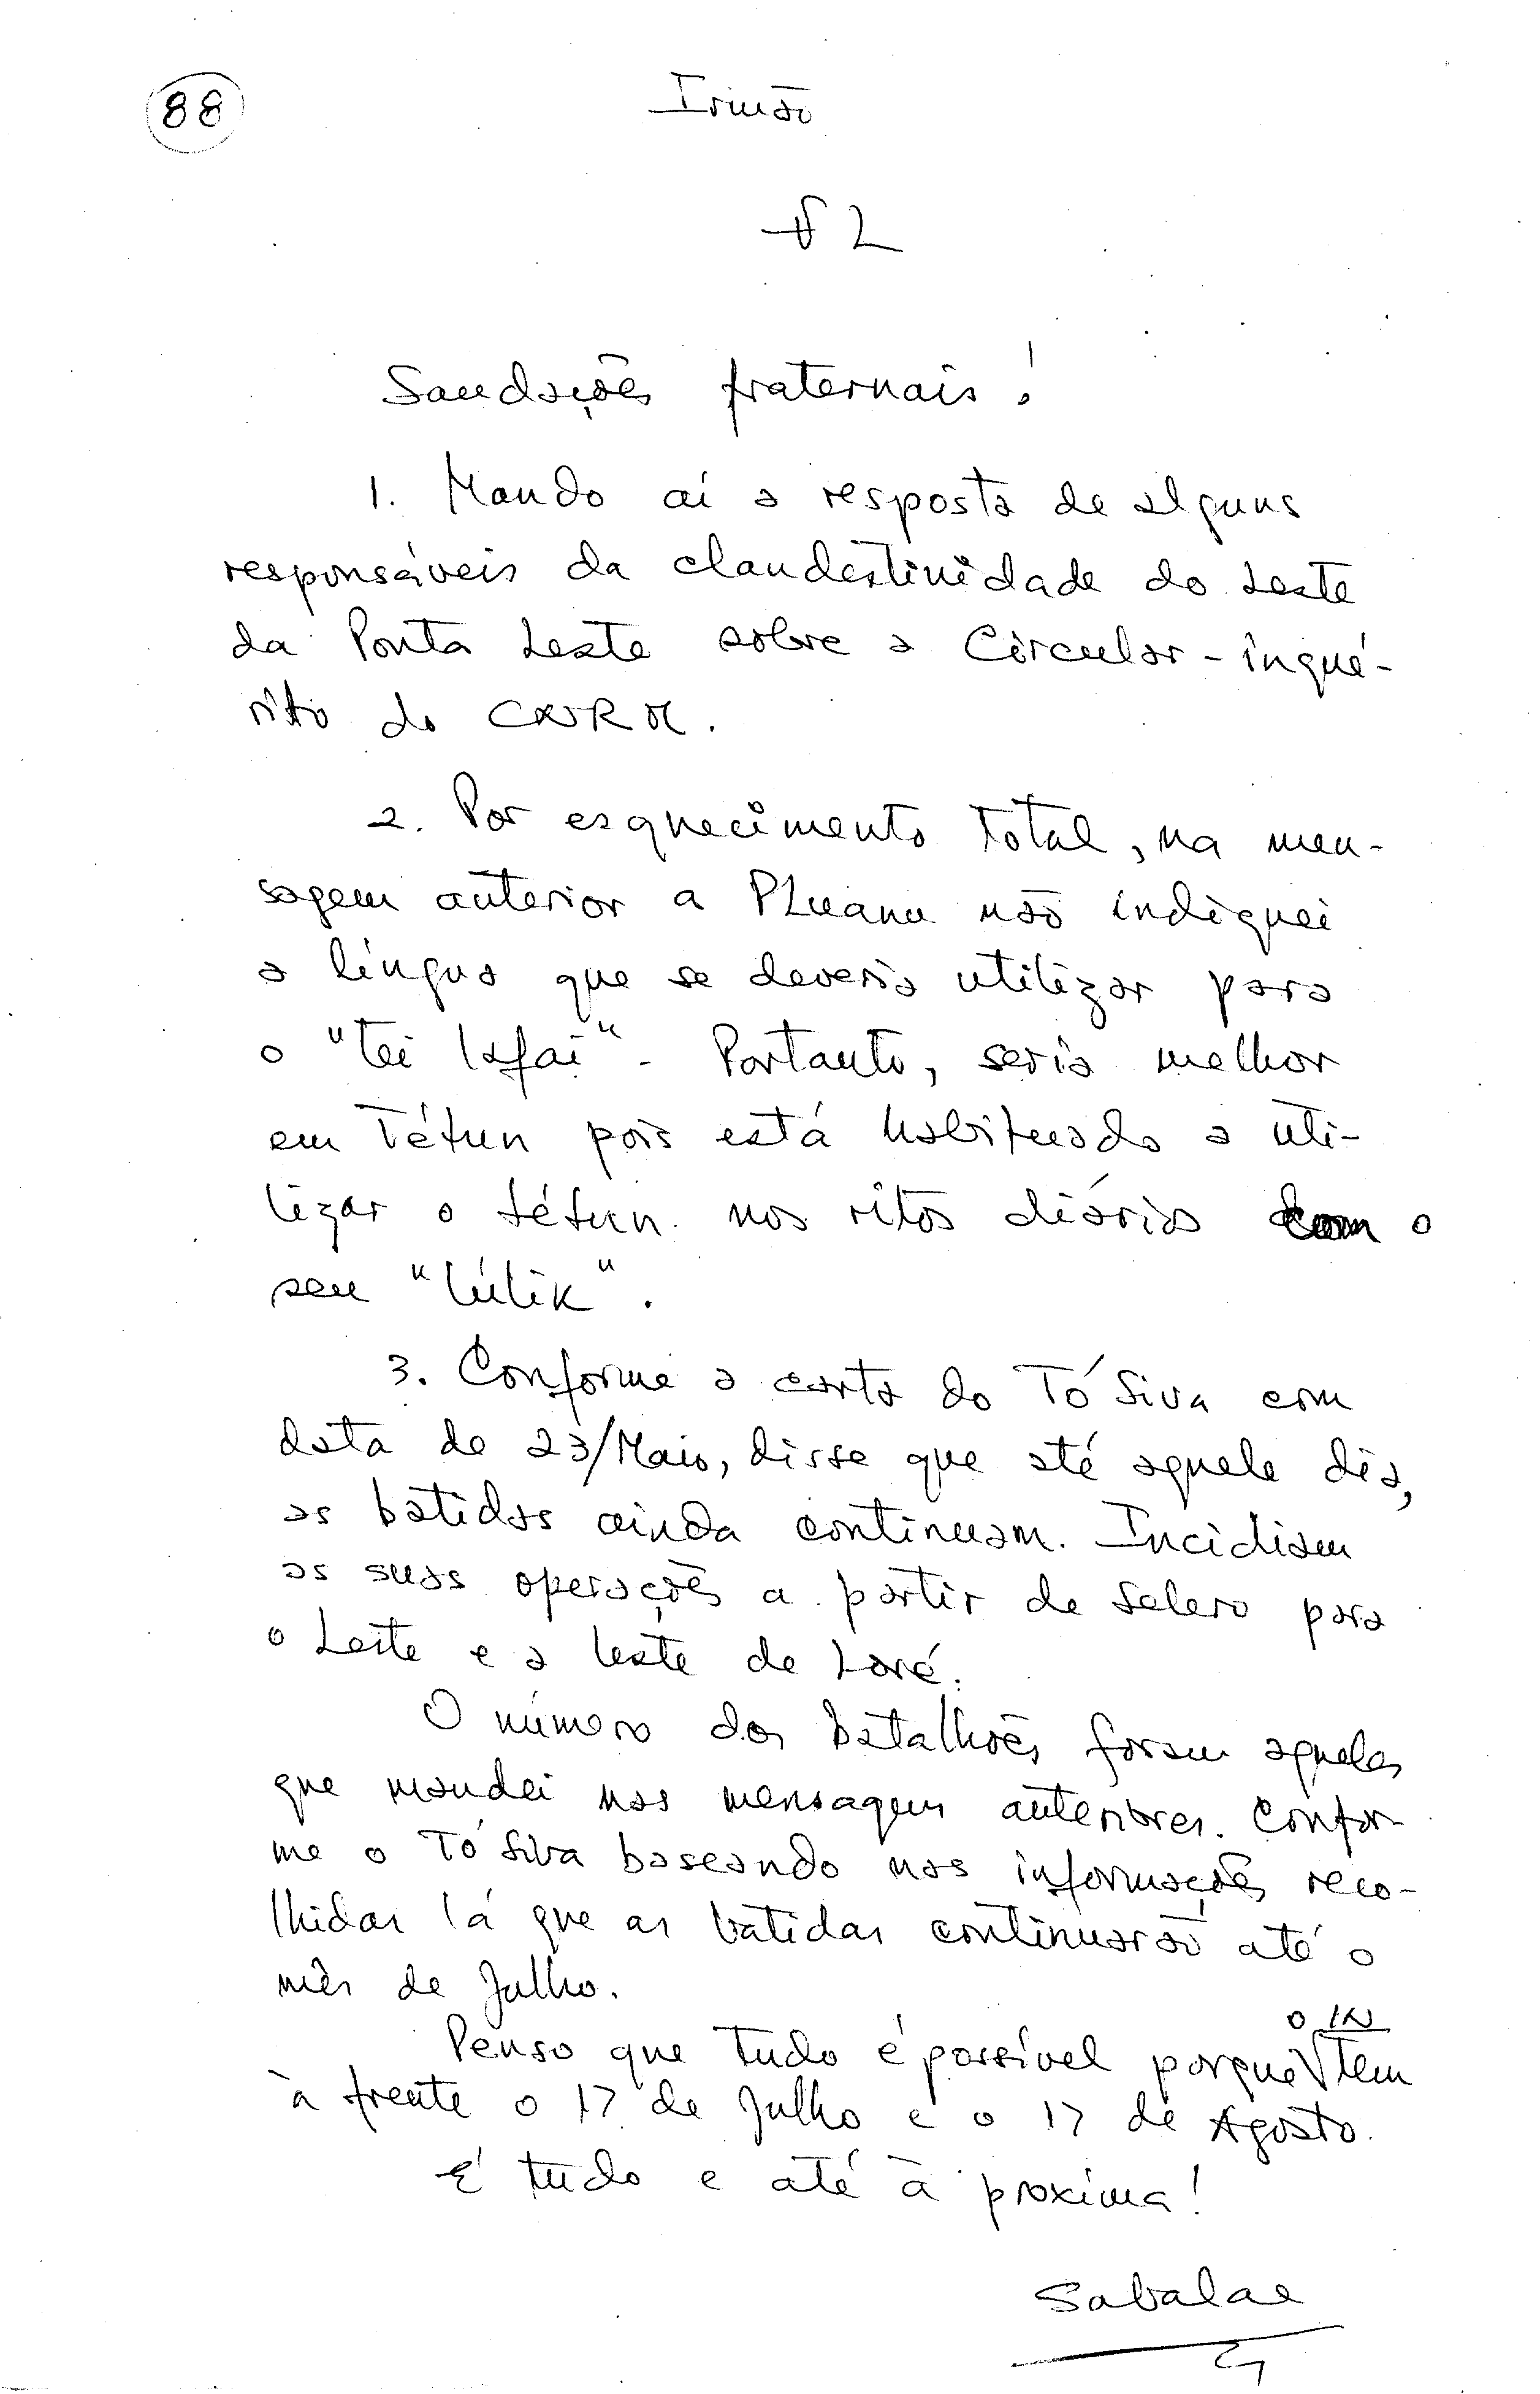 88
Irmão
Saudações fraternais!
1. Mando aí a resposta de alguns
responsáveis da clandestinidade do Leste
da Ponta Leste sobre a Circular-inqué-
rito do CNRM.
2. Por esquecimento total, na men-
sagem anterior a não indiquei
a língua que se deveria utilizar para
o "tei lafai". Portanto, seria melhor
em Tétun pois está habituado a uti-
lizar o tétun nos ritos diários com o
seu "lúlik".
3. Conforme a carta do Tó Siva com
data de 23/Maio, disse que até aquele dia,
as batidas ainda continuam. Incidiam
as suas operações a partir de Salero para
o Leste e a leste de Loré.
O número dos batalhões foram aqueles
que mandei nas mensagens anteriores. Confor-
me o Tó Siva baseando nas informações reco-
lhidas lá que as batidas continuarão até o
mês de Julho.
Penso que tudo é possível porque o IN tem
à frente o 17 de Julho e o 17 de Agosto.
É tudo e até à proxima!
Sabalae